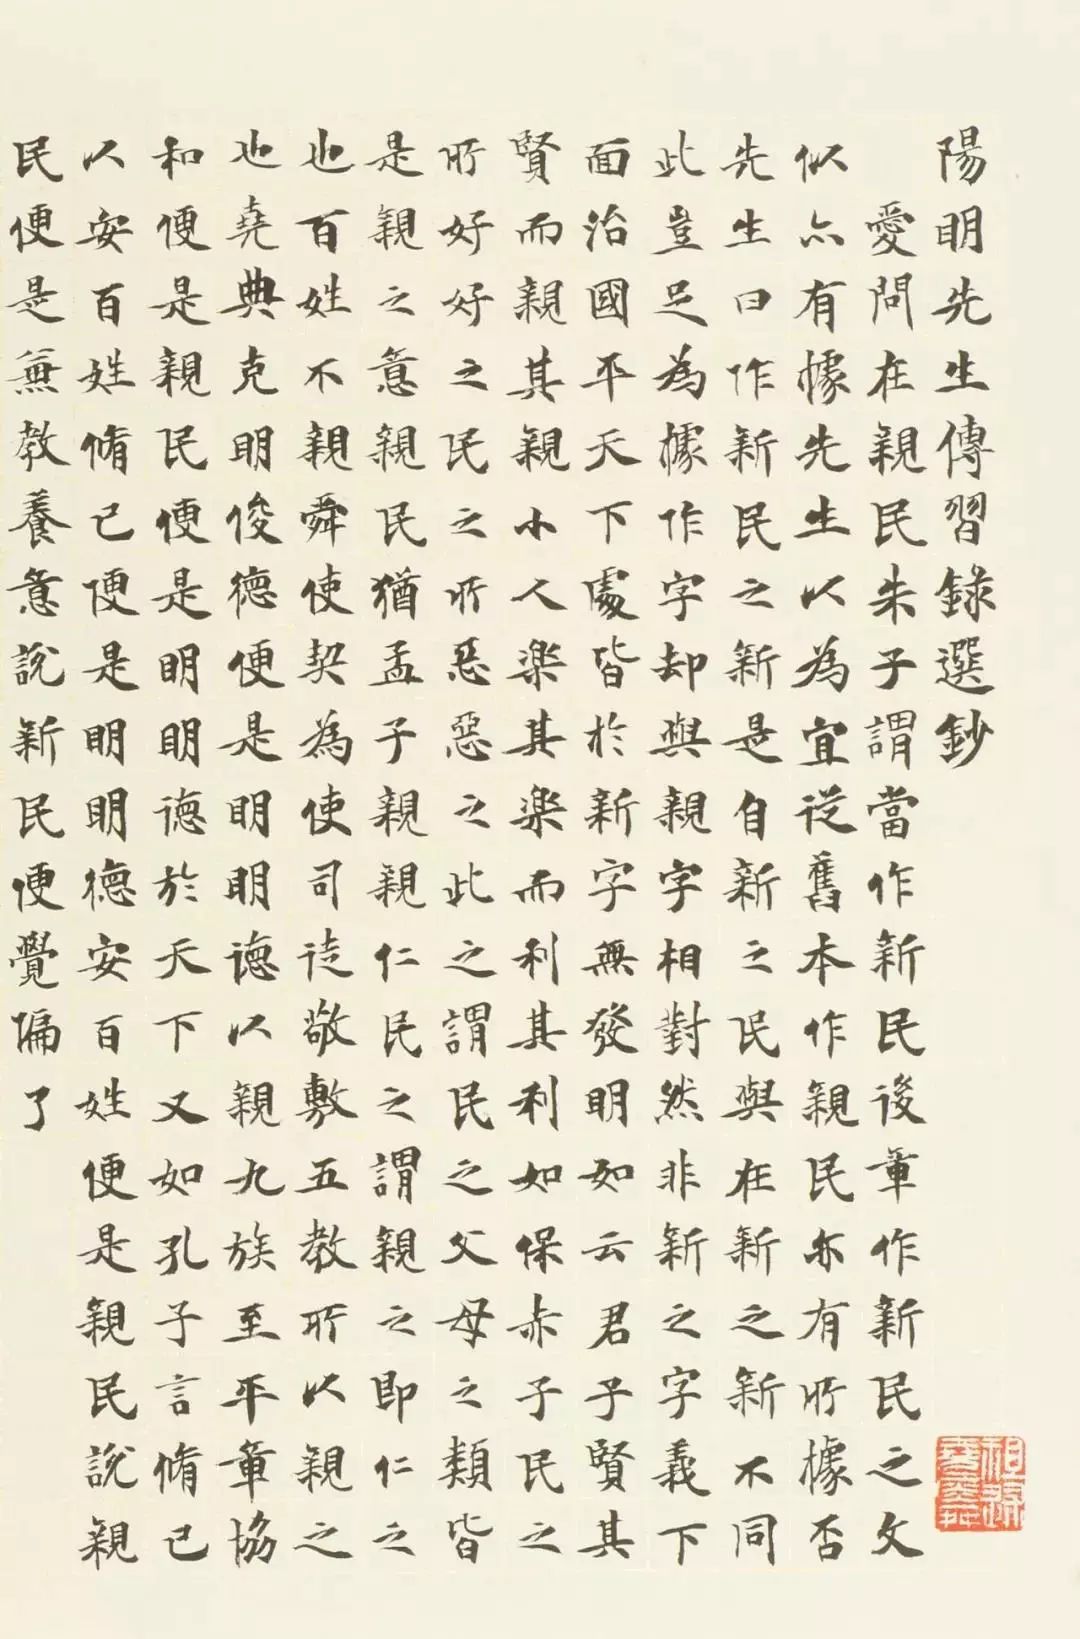 陽明先生傳習錄選鈔
愛問在親民朱子謂當作新民後章作新民之文
似亦有據先生以為宜從舊本作親民亦有所據否
先生曰作新民之新是自新之民與在新之新不同
此豈足為據作字却與親字相對然非新之字義下
面治國平天下處皆於新字無發明如云君子賢其
賢而親其親小人楽其楽而利其利如保赤子民之
所好好之民之所惡惡之此之謂民之父母之類皆
是親之意親民猶孟子親親仁民之謂親之即仁之
也百姓不親舜使契為使司徒敬敷五教所以親之
也堯典克明俊德便是明明德以親九族至平章協
和便是親民便是明明德於天下又如孔子言脩己
以安百姓脩己便是明明德安百姓便是親民說親
民便是兼教養意說新民便覺偏了